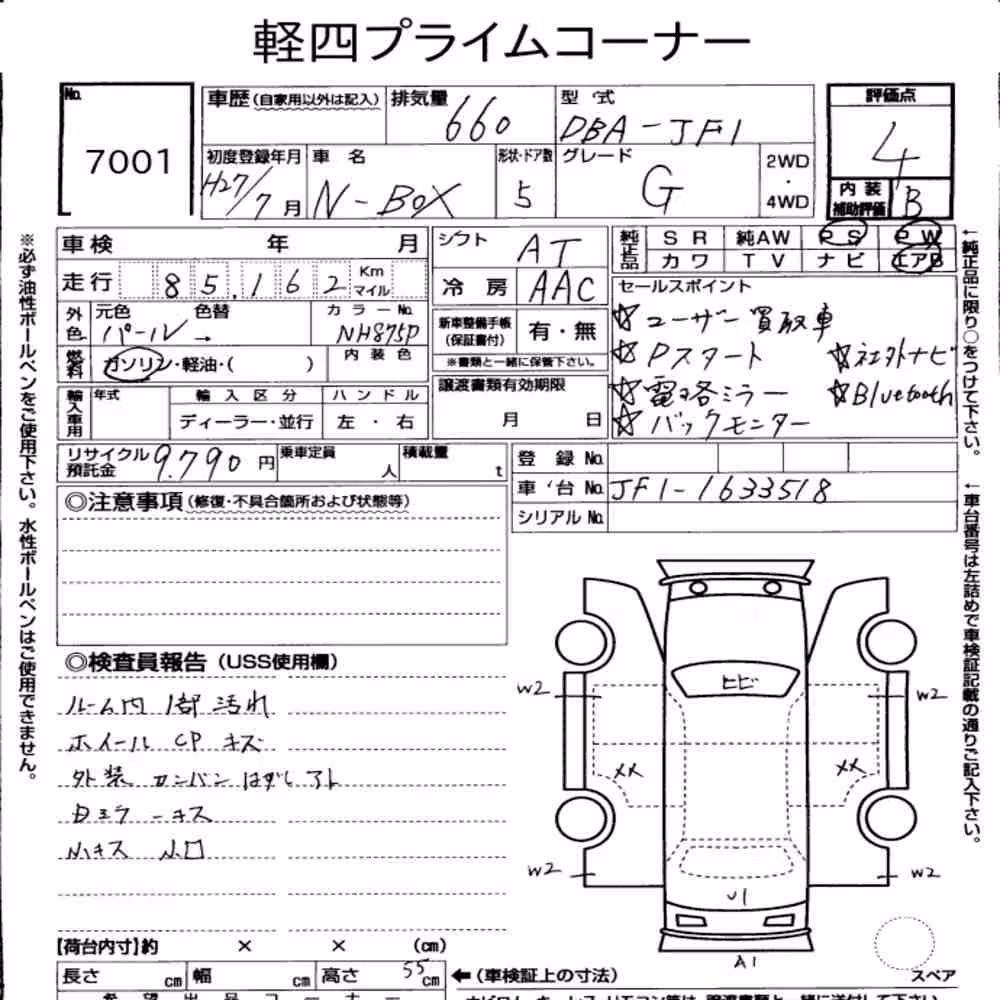 軽四プライムコーナー
No.
7001
車歴(自家用以外は記入)
排気量
660
型式
DBA-JF1
評価点
4
初度登録年月
H27/7月
車名
N-BOX
形状・ドア数
5
グレード
G
2WD
・
4WD
内装
補助評価
B
車検 年 月
シフト
AT
純正品
SR 純AW PS PW
カワ TV ナビ エアB
走行 85,162 Km
マイル
冷房
AAC
セールスポイント
外色
元色 色替 カラーNo.
パール → NH875P
新車整備手帳
(保証書付)
有・無
☆ユーザー買取車
☆Pスタート ☆社外ナビ
☆電格ミラー ☆Bluetooth
☆バックモニター
燃料
ガソリン・軽油・( )
内装色
※書類と一緒に保管下さい。
輸入車用
年式
輸入区分
ハンドル
ディーラー・並行
左・右
譲渡書類有効期限
月 日
リサイクル
預託金
9.790円
乗車定員
人
積載量
t
登録No.
車台No.
JF1-1633518
シリアルNo.
◎注意事項(修復・不具合箇所および状態等)
◎検査員報告(USS使用欄)
ルーム内 1部 汚れ
ホイール CP キズ
外装 カンバン はずしアト
小キス 小凹
ヒビ
W2
W2
XX
XX
W2
W2
U1
A1
スペア
【荷台内寸】約 × × (cm)
長さ cm
幅 cm
高さ 55cm
←(車検証上の寸法)
※必ず油性ボールペンをご使用下さい。水性ボールペンはご使用できません。
←純正品に限り○をつけて下さい。
←車台番号は左詰めで車検証記載の通りご記入下さい。